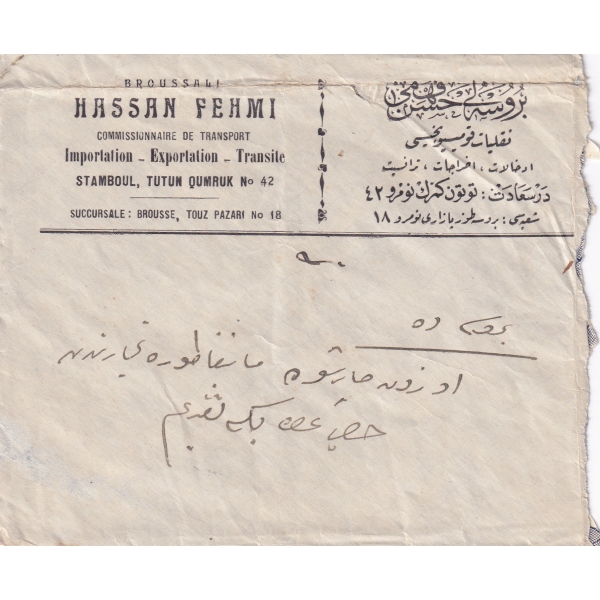 BROUSSALI
HASSAN FEHMI
COMMISSIONNAIRE DE TRANSPORT
Importation - Exportation - Transite
STAMBOUL, TUTUN QUMRUK No 42
SUCCURSALE: BROUSSE, TOUZ PAZARI No 18
بروسه‌لی حسن فهمی
نقلیات قومیسیونجیسی
ادخالات، اخراجات، ترانسیت
درسعادت: توتون كمرك نومرو ٤٢
شعبه‌سی: بروسه طوز پازاری نومرو ١٨
ده
اوزون چارشوده مانفاطوره تجارندن
بكه تقدیم